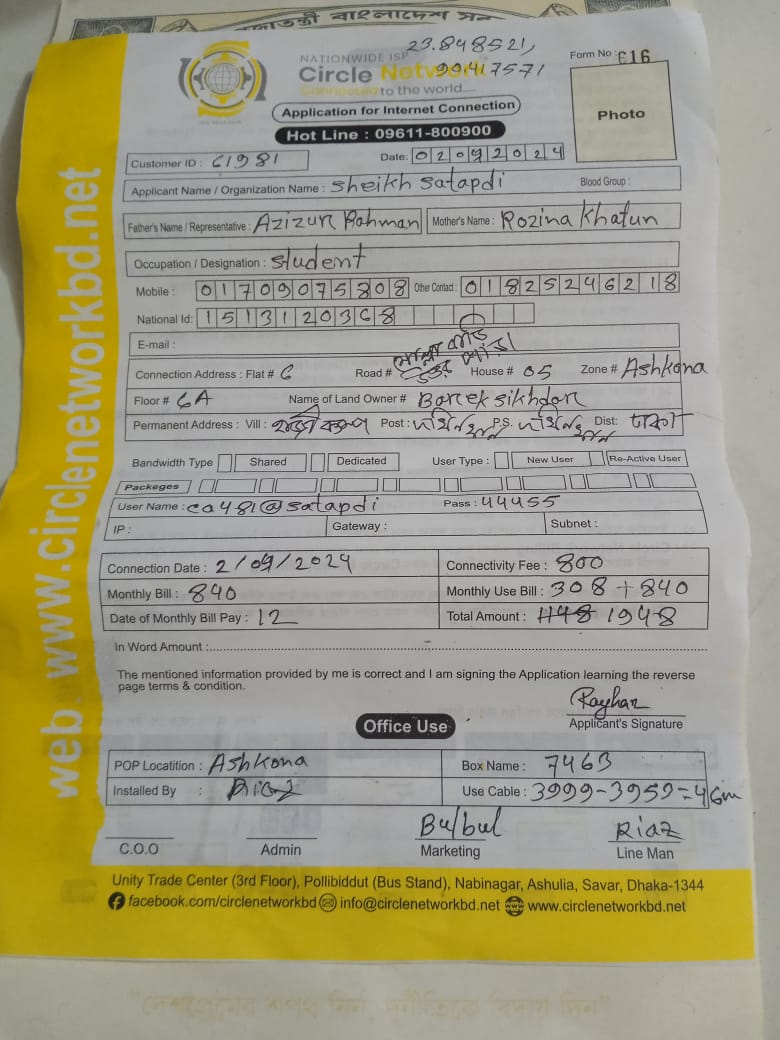 23.848521,
90.417571
NATIONWIDE ISP
Circle Network
Connected to the world...
Form No : 616
Application for Internet Connection
Hot Line : 09611-800900
Photo
Customer ID : C1981
Date: 02092024
Applicant Name / Organization Name : Sheikh Satapdi Blood Group :
Father's Name / Representative : Azizur Rahman Mother's Name : Rozina Khatun
Occupation / Designation : Student
Mobile : 01709075808 Other Contact : 01825246218
National Id: 1513120368
E-mail :
Connection Address : Flat # 6 Road # House # 05 Zone # Ashkona
Floor # 6A Name of Land Owner # Barek Sikhdar
Permanent Address : Vill : Post : P.S. Dist: ঢাকা
Bandwidth Type Shared Dedicated User Type : New User Re-Active User
Packeges
User Name : ca481@satapdi Pass : 44455
IP : Gateway : Subnet :
Connection Date : 2/09/2024 Connectivity Fee : 800
Monthly Bill : 840 Monthly Use Bill : 308 + 840
Date of Monthly Bill Pay : 12 Total Amount : 1148 1948
In Word Amount :
The mentioned information provided by me is correct and I am signing the Application learning the reverse
page terms & condition.
Rayhan
Applicant's Signature
Office Use
POP Locatition : Ashkona Box Name : 7463
Installed By : Riaz Use Cable : 3999-3953=46m
Bulbul Riaz
C.O.O Admin Marketing Line Man
Unity Trade Center (3rd Floor), Pollibiddut (Bus Stand), Nabinagar, Ashulia, Savar, Dhaka-1344
facebook.com/circlenetworkbd info@circlenetworkbd.net www.circlenetworkbd.net
web : www.circlenetworkbd.net